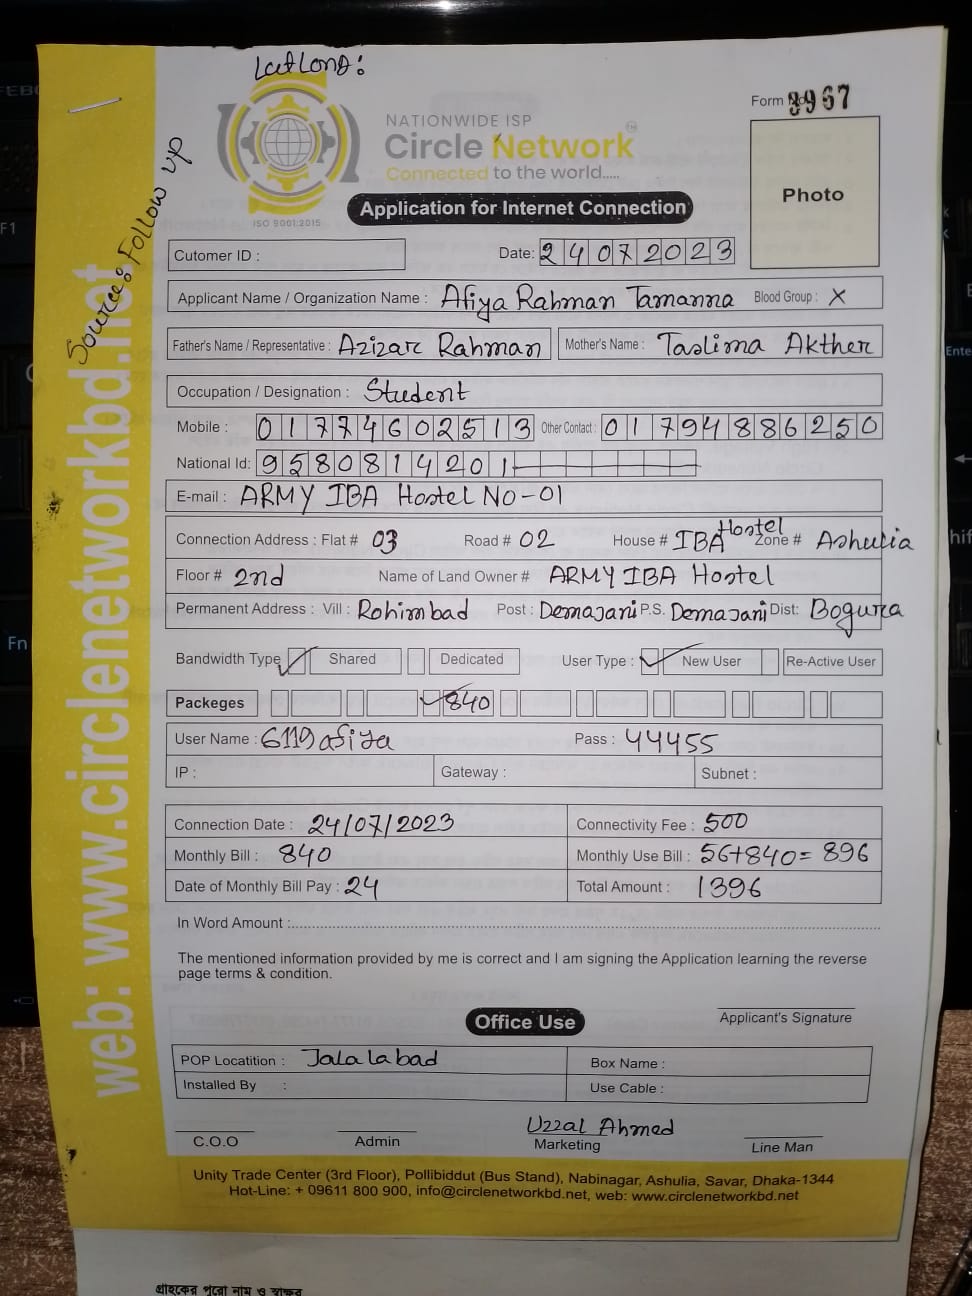 LatLong:
Form No 3967
NATIONWIDE ISP
Circle Network TM
Connected to the world.....
ISO 9001:2015
Photo
Application for Internet Connection
Source: Follow up
web: www.circlenetworkbd.net
Cutomer ID :
Date: 24072023
Applicant Name / Organization Name : Afiya Rahman Tamanna Blood Group : X
Father's Name / Representative : Azizar Rahman Mother's Name : Taslima Akther
Occupation / Designation : Student
Mobile : 01774602513 Other Contact : 01794886250
National Id: 9580814201
E-mail : ARMY IBA Hostel No-01
Connection Address : Flat # 03 Road # 02 House # IBA Hostel Zone # Ashulia
Floor # 2nd Name of Land Owner # ARMY IBA Hostel
Permanent Address : Vill : Rohimbad Post : Demajani P.S. Demajani Dist: Bogura
Bandwidth Type ✓ Shared Dedicated User Type : ✓ New User Re-Active User
Packeges ✓ 840
User Name : 6119afiya Pass : 44455
IP : Gateway : Subnet :
Connection Date : 24/07/2023 Connectivity Fee : 500
Monthly Bill : 840 Monthly Use Bill : 56+840= 896
Date of Monthly Bill Pay : 24 Total Amount : 1396
In Word Amount :
The mentioned information provided by me is correct and I am signing the Application learning the reverse
page terms & condition.
Applicant's Signature
Office Use
POP Locatition : Jalalabad Box Name :
Installed By : Use Cable :
Uzzal Ahmed
C.O.O Admin Marketing Line Man
Unity Trade Center (3rd Floor), Pollibiddut (Bus Stand), Nabinagar, Ashulia, Savar, Dhaka-1344
Hot-Line: + 09611 800 900, info@circlenetworkbd.net, web: www.circlenetworkbd.net
গ্রাহকের পুরো নাম ও স্বাক্ষর